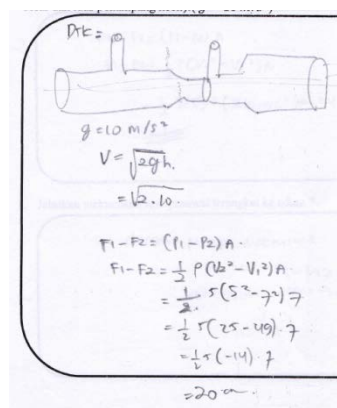 Dik =
g = 10 m/s²
V = √2gh.
= √2.10.
F1 - F2 = (P1 - P2) A
F1 - F2 = 1/2 ρ (V2² - V1²) A
= 1/2 . 5 (5² - 7²) 7
= 1/2 5 (25 - 49) . 7
= 1/2 5 (-14) . 7
= 20